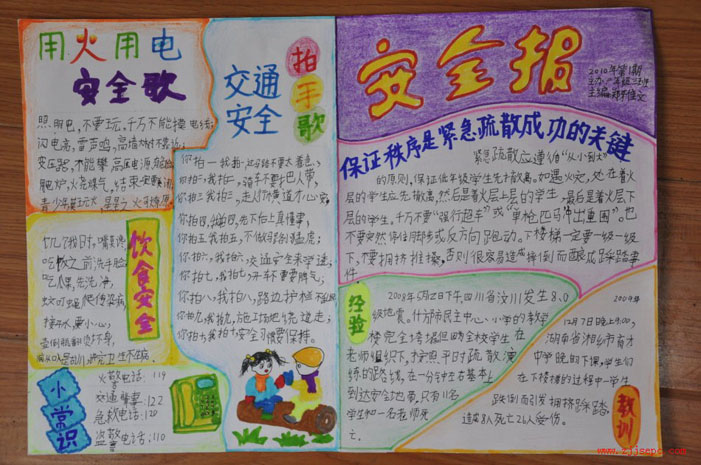 用火用电
安全歌
照明电,不要玩,千万不能碰电线
闪电高,雷声鸣,高墙大树不靠近
变压器,不能攀,高压电源
饮食安全
吃饭之前洗手脸
吃瓜果,先洗净
蚊叮蝇爬传染病
小常识
火警电话:119
交通肇事:122
急救电话:120
盗警电话:110
交通
安全
拍手歌
你拍一我拍一
你拍二我拍二
你拍三我拍三,走人行横道才心安
你拍四,我拍四
你拍五我拍五,不做马路小猛虎
你拍六,我拍六
你拍七,我拍七
你拍八我拍八,路边护栏不能跨
你拍九我拍九,施工场地绕道走
你拍十我拍十,安全习惯要保持。
安全报
2010年第1期
保证秩序是紧急疏散成功的关键
紧急疏散应遵循“从小到大”
的原则,保证低年级学生先撤离。如遇火灾,处在着火
层的学生应先撤离,然后是着火层上层的学生,最后是着火层下
层的学生,千万不要“强行超车”或“单枪匹马冲出重围”。也
不要突然停住脚步或反方向跑动。下楼梯一定要一级一级
下,不要拥挤推搡,否则很容易造成摔倒而酿成踩踏事
件
经验
2008年5月12日下午四川省汶川发生8.0
级地震。什邡市民主中心小学的教学
楼完全垮塌但的全校学生在
老师组织下,按照平时疏散演
练的路线,在一分钟左右基本上
到达安全地带,只有几名
学生和一名老师死
亡
2009年
12月7日晚上9:00,
湖南省湘乡市育才
中学晚自下课,学生们
在下楼梯的过程中一学生
跌倒而引发拥挤踩踏
造成8人死亡26人受伤。
教训
www.zjjsepc.com